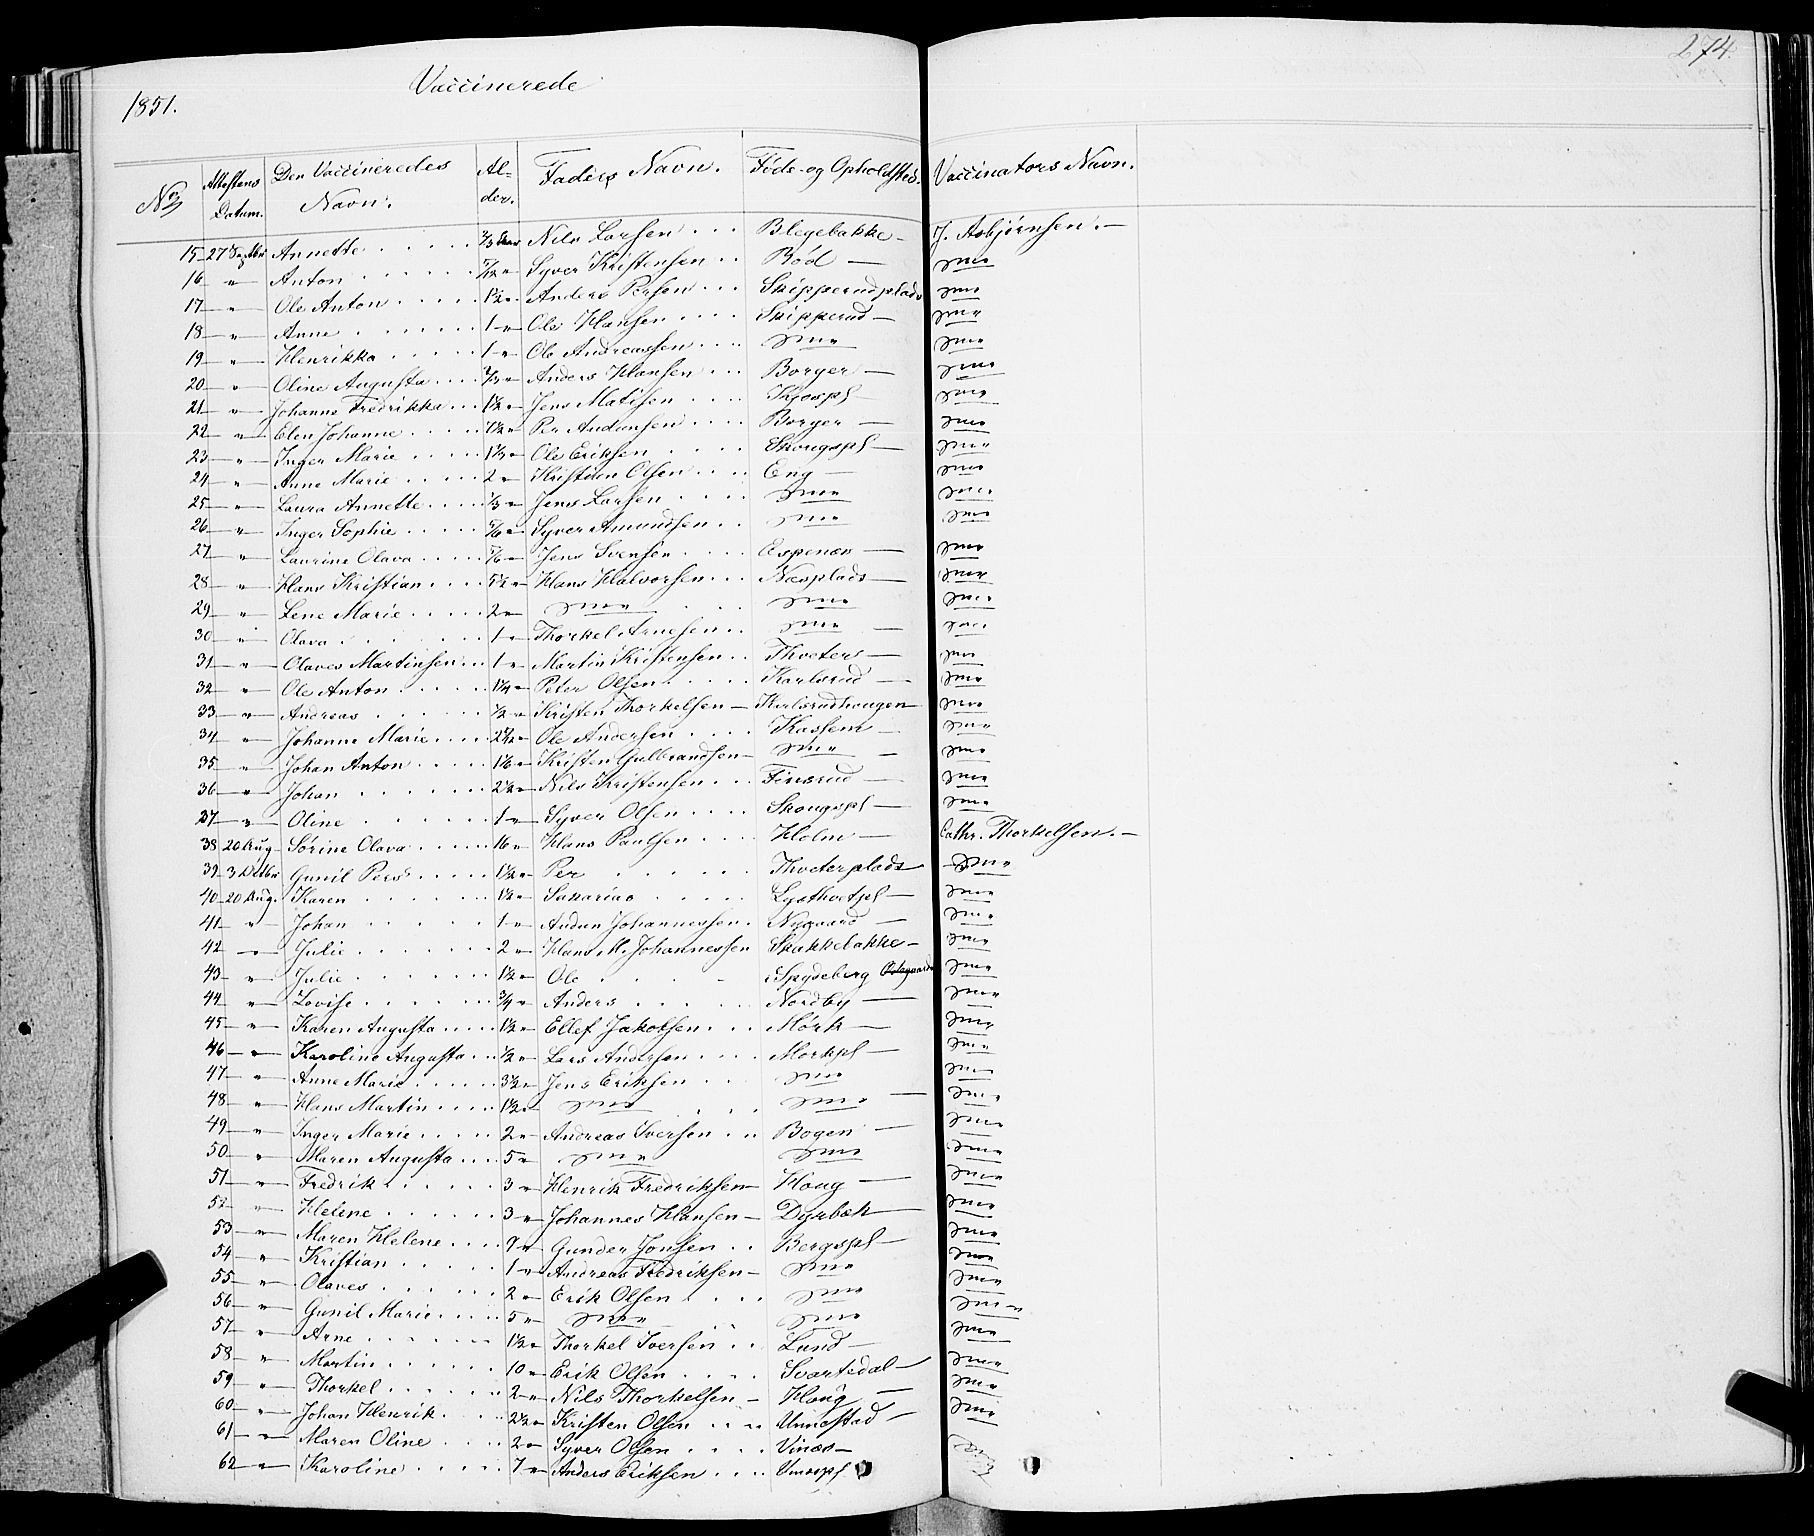 274.
Vaccinerede
1851.
No Attestens Datum. Den Vaccineredes Navn. Alder. Faders Navn. Føde- og Opholdsted. Vaccinators Navn.
15 27 Septbr Annette 2/3 Nils Larsen Blegebakke J. Asbjørnsen.
16 " Anton 5/12 " Syver Kristensen Bød dme
17 " Ole Anton 1½ " Anders Persen Skipperudplads dme
18 " Anne 1 " Ole Hansen Skipperud dme
19 " Henrikka 1 " Ole Andreassen dme dme
20 " Oline Augusta 2/3 " Anders Hansen Borger dme
21 " Johanne Fredrikka 1½ " Jens Matisen dme
22 " Elen Johanne 1½ " Per Andersen Borger dme
23 " Inger Marie 1⅓ " Ole Eriksen Skougspl dme
24 " Anne Marie 2 " Kristian Olsen Eng dme
25 " Laura Annette ⅓ " Jens Larsen dme dme
26 " Inger Sophie 5/6 " Syver Amundsen dme dme
27 " Laurine Olava 5/6 " Jens Svensen Espenæs dme
28 " Hans Kristian 5½ " Hans Halvorsen Næsplads dme
29 " Lene Marie 2 " dme dme dme
30 " Olava 1 " Thorkel Arnesen dme dme
31 " Olaves Martinsen 1 " Martin Kristensen Thveter dme
32 " Ole Anton 1¼ " Peter Olsen Karlsrud dme
33 " Andreas ½ " Kristen Thorkelsen Karlsrudhaugen dme
34 " Johanne Marie 2½ " Ole Andersen Kassem dme
35 " Johan Anton 1⅙ " Kristen Gulbrandsen dme dme
36 " Johan 2½ " Nils Kristensen Finsrud dme
37 " Oline 1 " Syver Olsen Skougspl dme
38 20 Aug Sørine Olava 16 " Hans Paulsen Holm Cathr. Thorkelsen.
39 3 Octbr Gunil Pers 1½ " Per Thveterplads dme
40 20 Aug. Karen 1½ " Sakarias dme
41 " Johan 1 " Andun Johannessen Nygaard dme
42 " Julie 2 " Hans M. Johannessen Skakkebakke dme
43 " Julie 1½ " Ole Spydeberg dme
44 " Lovise ¾ " Anders Nordby dme
45 " Karen Augusta 1½ " Ellef Jakobsen Mørk dme
46 " Karoline Augusta ½ " Lars Andersen Mørkpl dme
47 " Anne Marie 3½ " Jens Eriksen dme dme
48 " Hans Martin 1½ " dme dme dme
49 " Inger Marie 2 " Andreas Iversen Bogen dme
50 " Maren Augusta 5 " dme dme dme
51 " Fredrik 3 " Henrik Fredriksen Houg dme
52 " Helene 3 " Johannes Hansen Dyrbæk dme
53 " Maren Helene 9 " Gunder Jonsen Bergspl dme
54 " Kristian 1 " Andreas Fredriksen dme dme
55 " Olaves 2 " Erik Olsen dme dme
56 " Gunil Marie 5 " dme dme dme
57 " Arne 1½ " Thorkel Iversen Lund dme
58 " Martin 10 " Erik Olsen Svartedal dme
59 " Thorkel 2 " Nils Thorkelsen Houg dme
60 " Johan Henrik 2½ " Kristen Olsen Unnestad dme
61 " Maren Oline 2 " Syver Olsen Vinæs
62 " Karoline 7 " Anders Eriksen Vinæspl